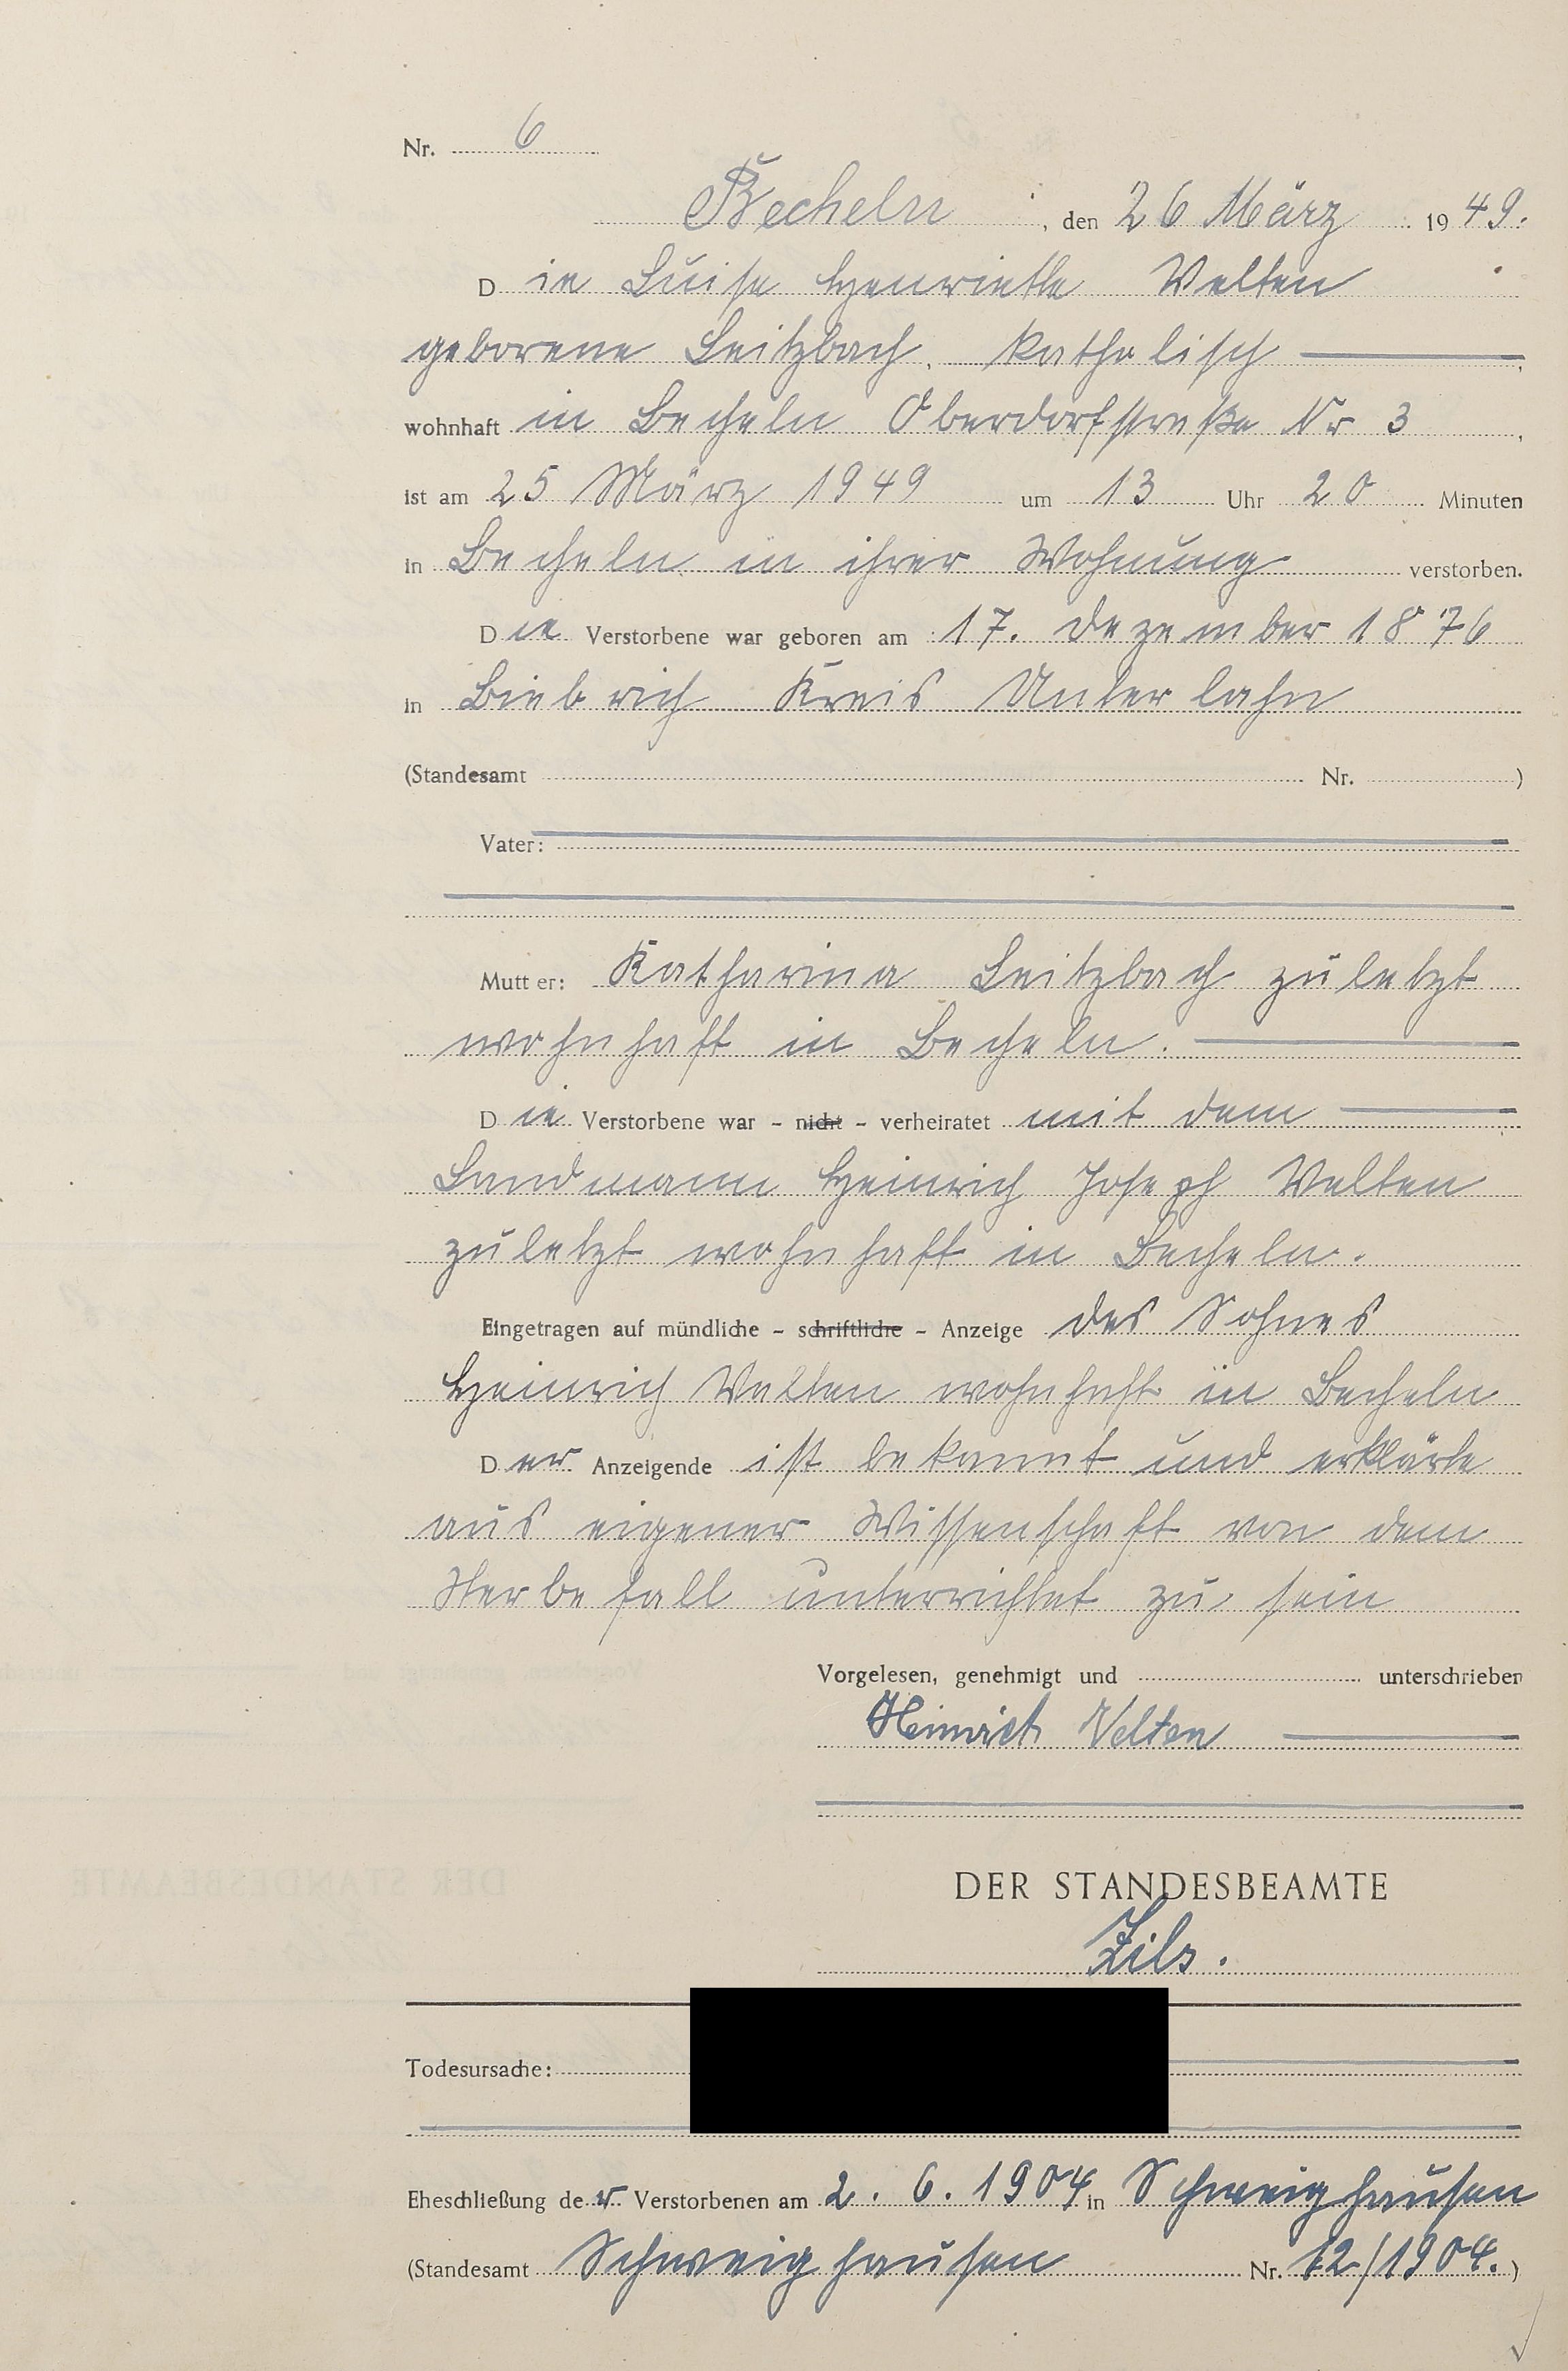 Nr. 6
Becheln, den 26 März 1949.
Die Luise Henriette Welten
geborene Leitzbach, katholisch
wohnhaft in Becheln Oberdorfstraße Nr 3,
ist am 25 März 1949 um 13 Uhr 20 Minuten
in Becheln in ihrer Wohnung verstorben.
Die Verstorbene war geboren am 17. Dezember 1876
in Biebrich Kreis Unterlahn
(Standesamt Nr. )
Vater:
Mutter: Katharina Leitzbach zuletzt
wohnhaft in Becheln.
Die Verstorbene war - nicht - verheiratet mit dem
Landmann Heinrich Joseph Welten
zuletzt wohnhaft in Becheln.
Eingetragen auf mündliche - schriftliche - Anzeige des Sohnes
Heinrich Welten wohnhaft in Becheln
Der Anzeigende ist bekannt und erklärte
aus eigener Wissenschaft von dem
Sterbefall unterrichtet zu sein
Vorgelesen, genehmigt und unterschrieben
Heinrich Velten
DER STANDESBEAMTE
Zils.
Todesursache:
Eheschließung der Verstorbenen am 2. 6. 1904 in Schweighausen
(Standesamt Schweighausen Nr. 12/1904.)